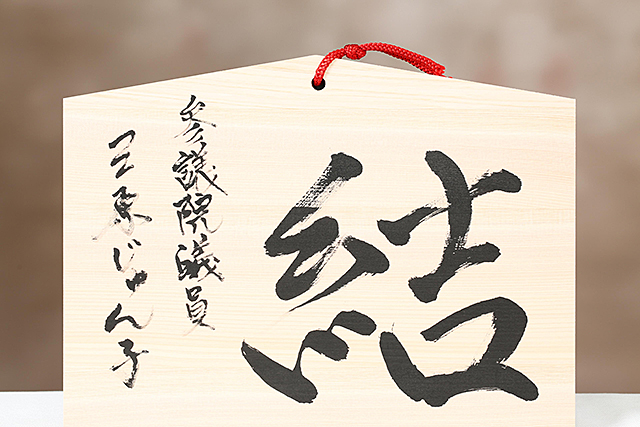 結
参議院議員
三原じゅん子